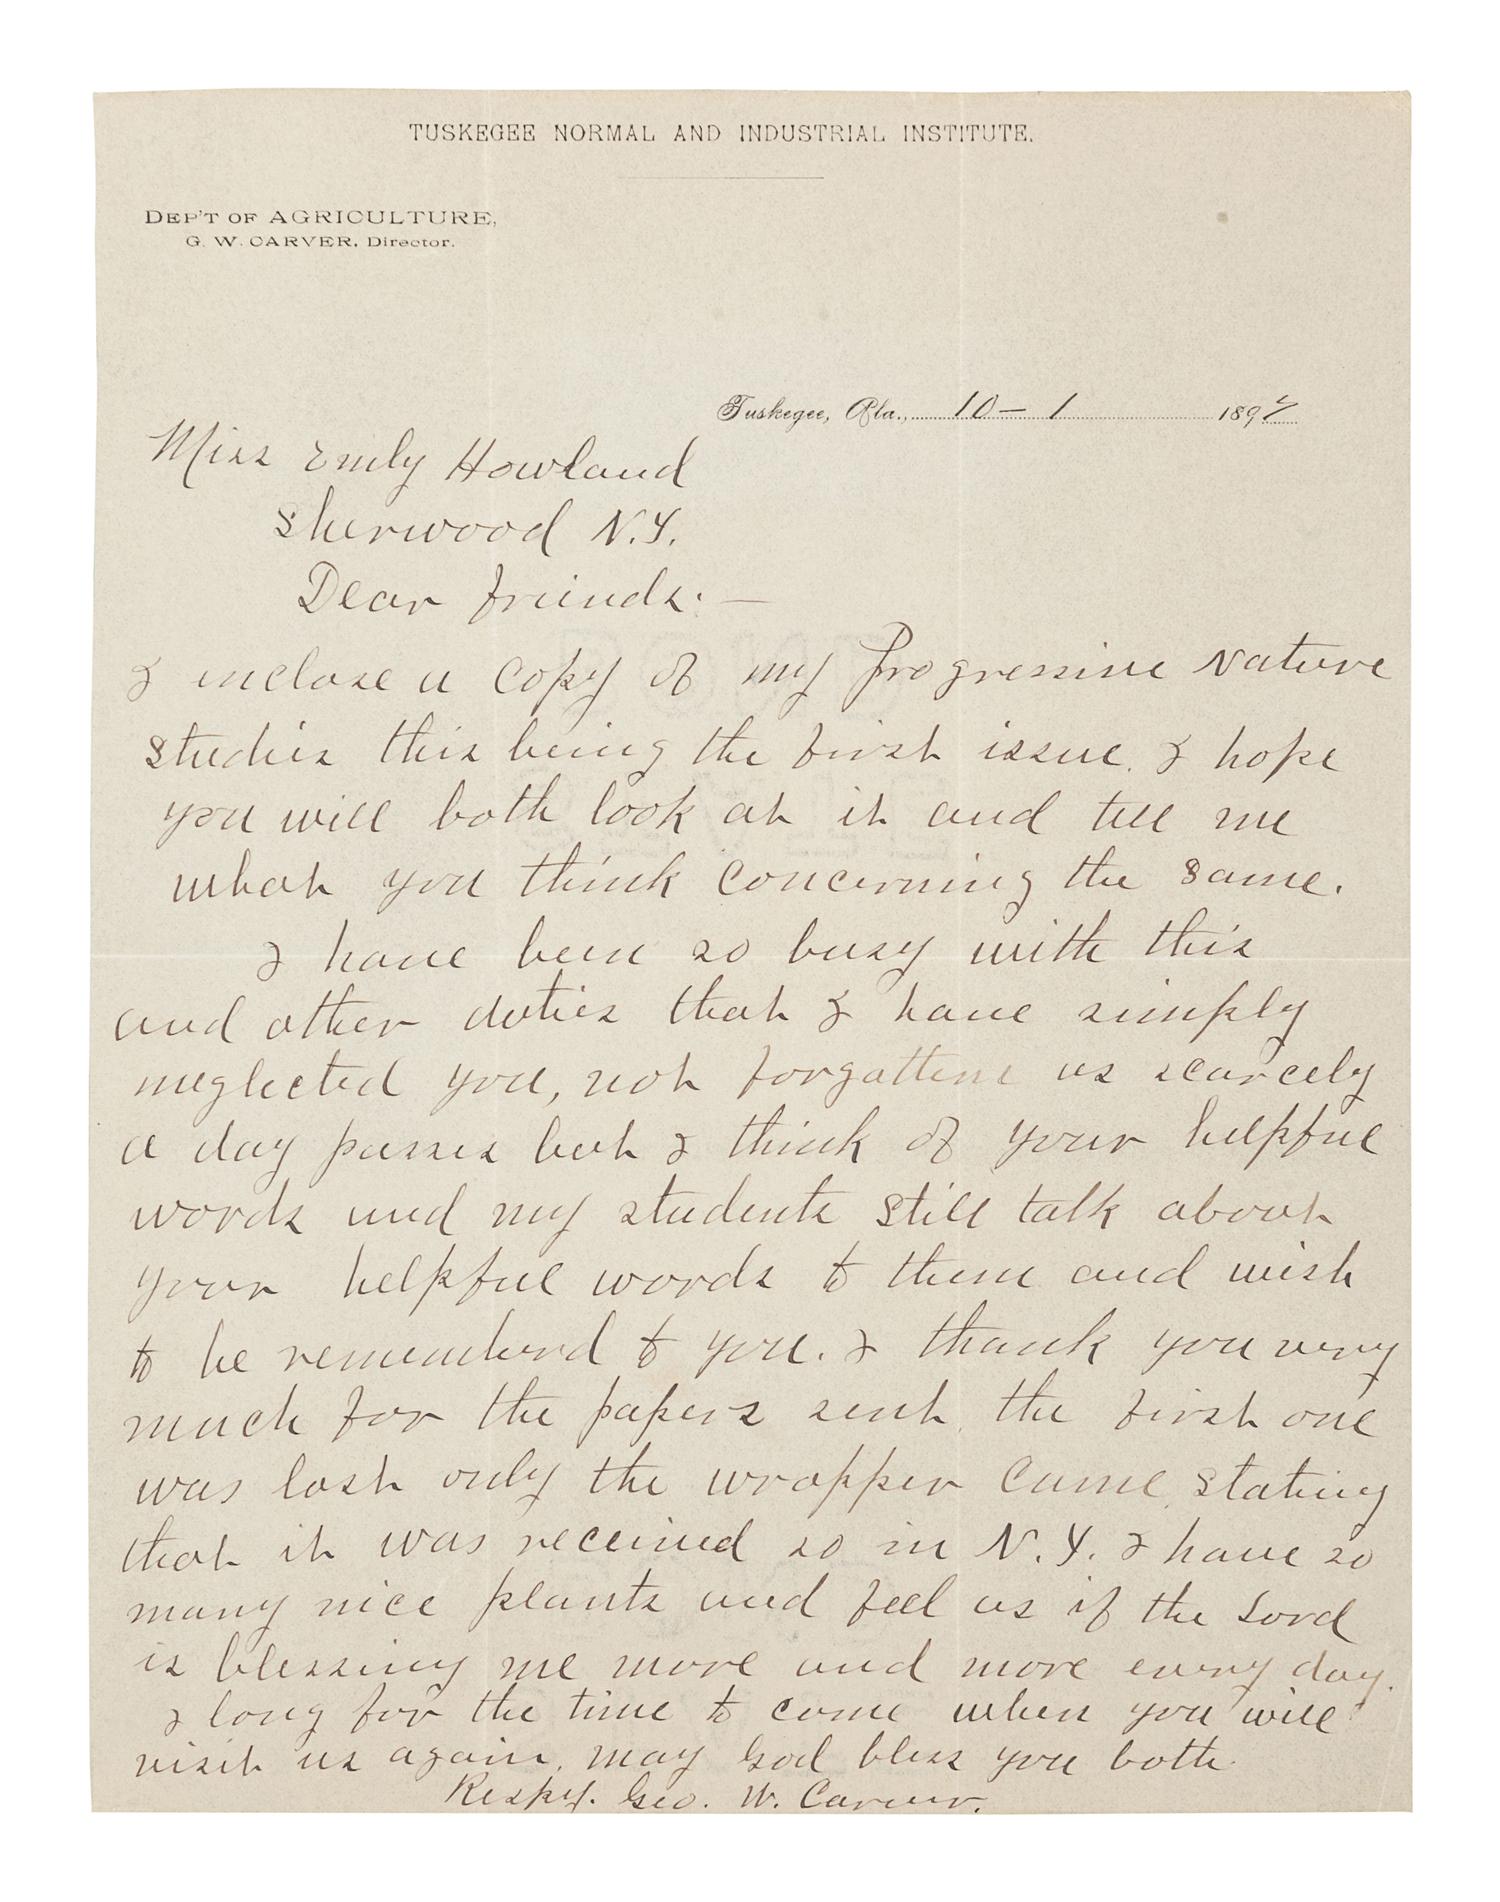 TUSKEGEE NORMAL AND INDUSTRIAL INSTITUTE.
DEP'T OF AGRICULTURE,
G. W. CARVER, Director.
Tuskegee, Ala., 10 – 1 1897
Miss Emily Howland
Sherwood N.Y.
Dear friends: —
I inclose a copy of my Progressive Nature
studies this being the first issue. I hope
you will both look at it and tell me
what you think concerning the same.
I have been so busy with this
and other duties that I have simply
neglected you, not forgotten as scarcely
a day passes but I think of your helpful
words and my students still talk about
your helpful words to them and wish
to be rememberd to you. I thank you very
much for the papers sent, the first one
was lost only the wrapper came, stating
that it was received so in N.Y. I have so
many nice plants and feel as if the Lord
is blessing me more and more every day.
I long for the time to come when you will
visit us again, may God bless you both.
Respy. Geo. W. Carver.